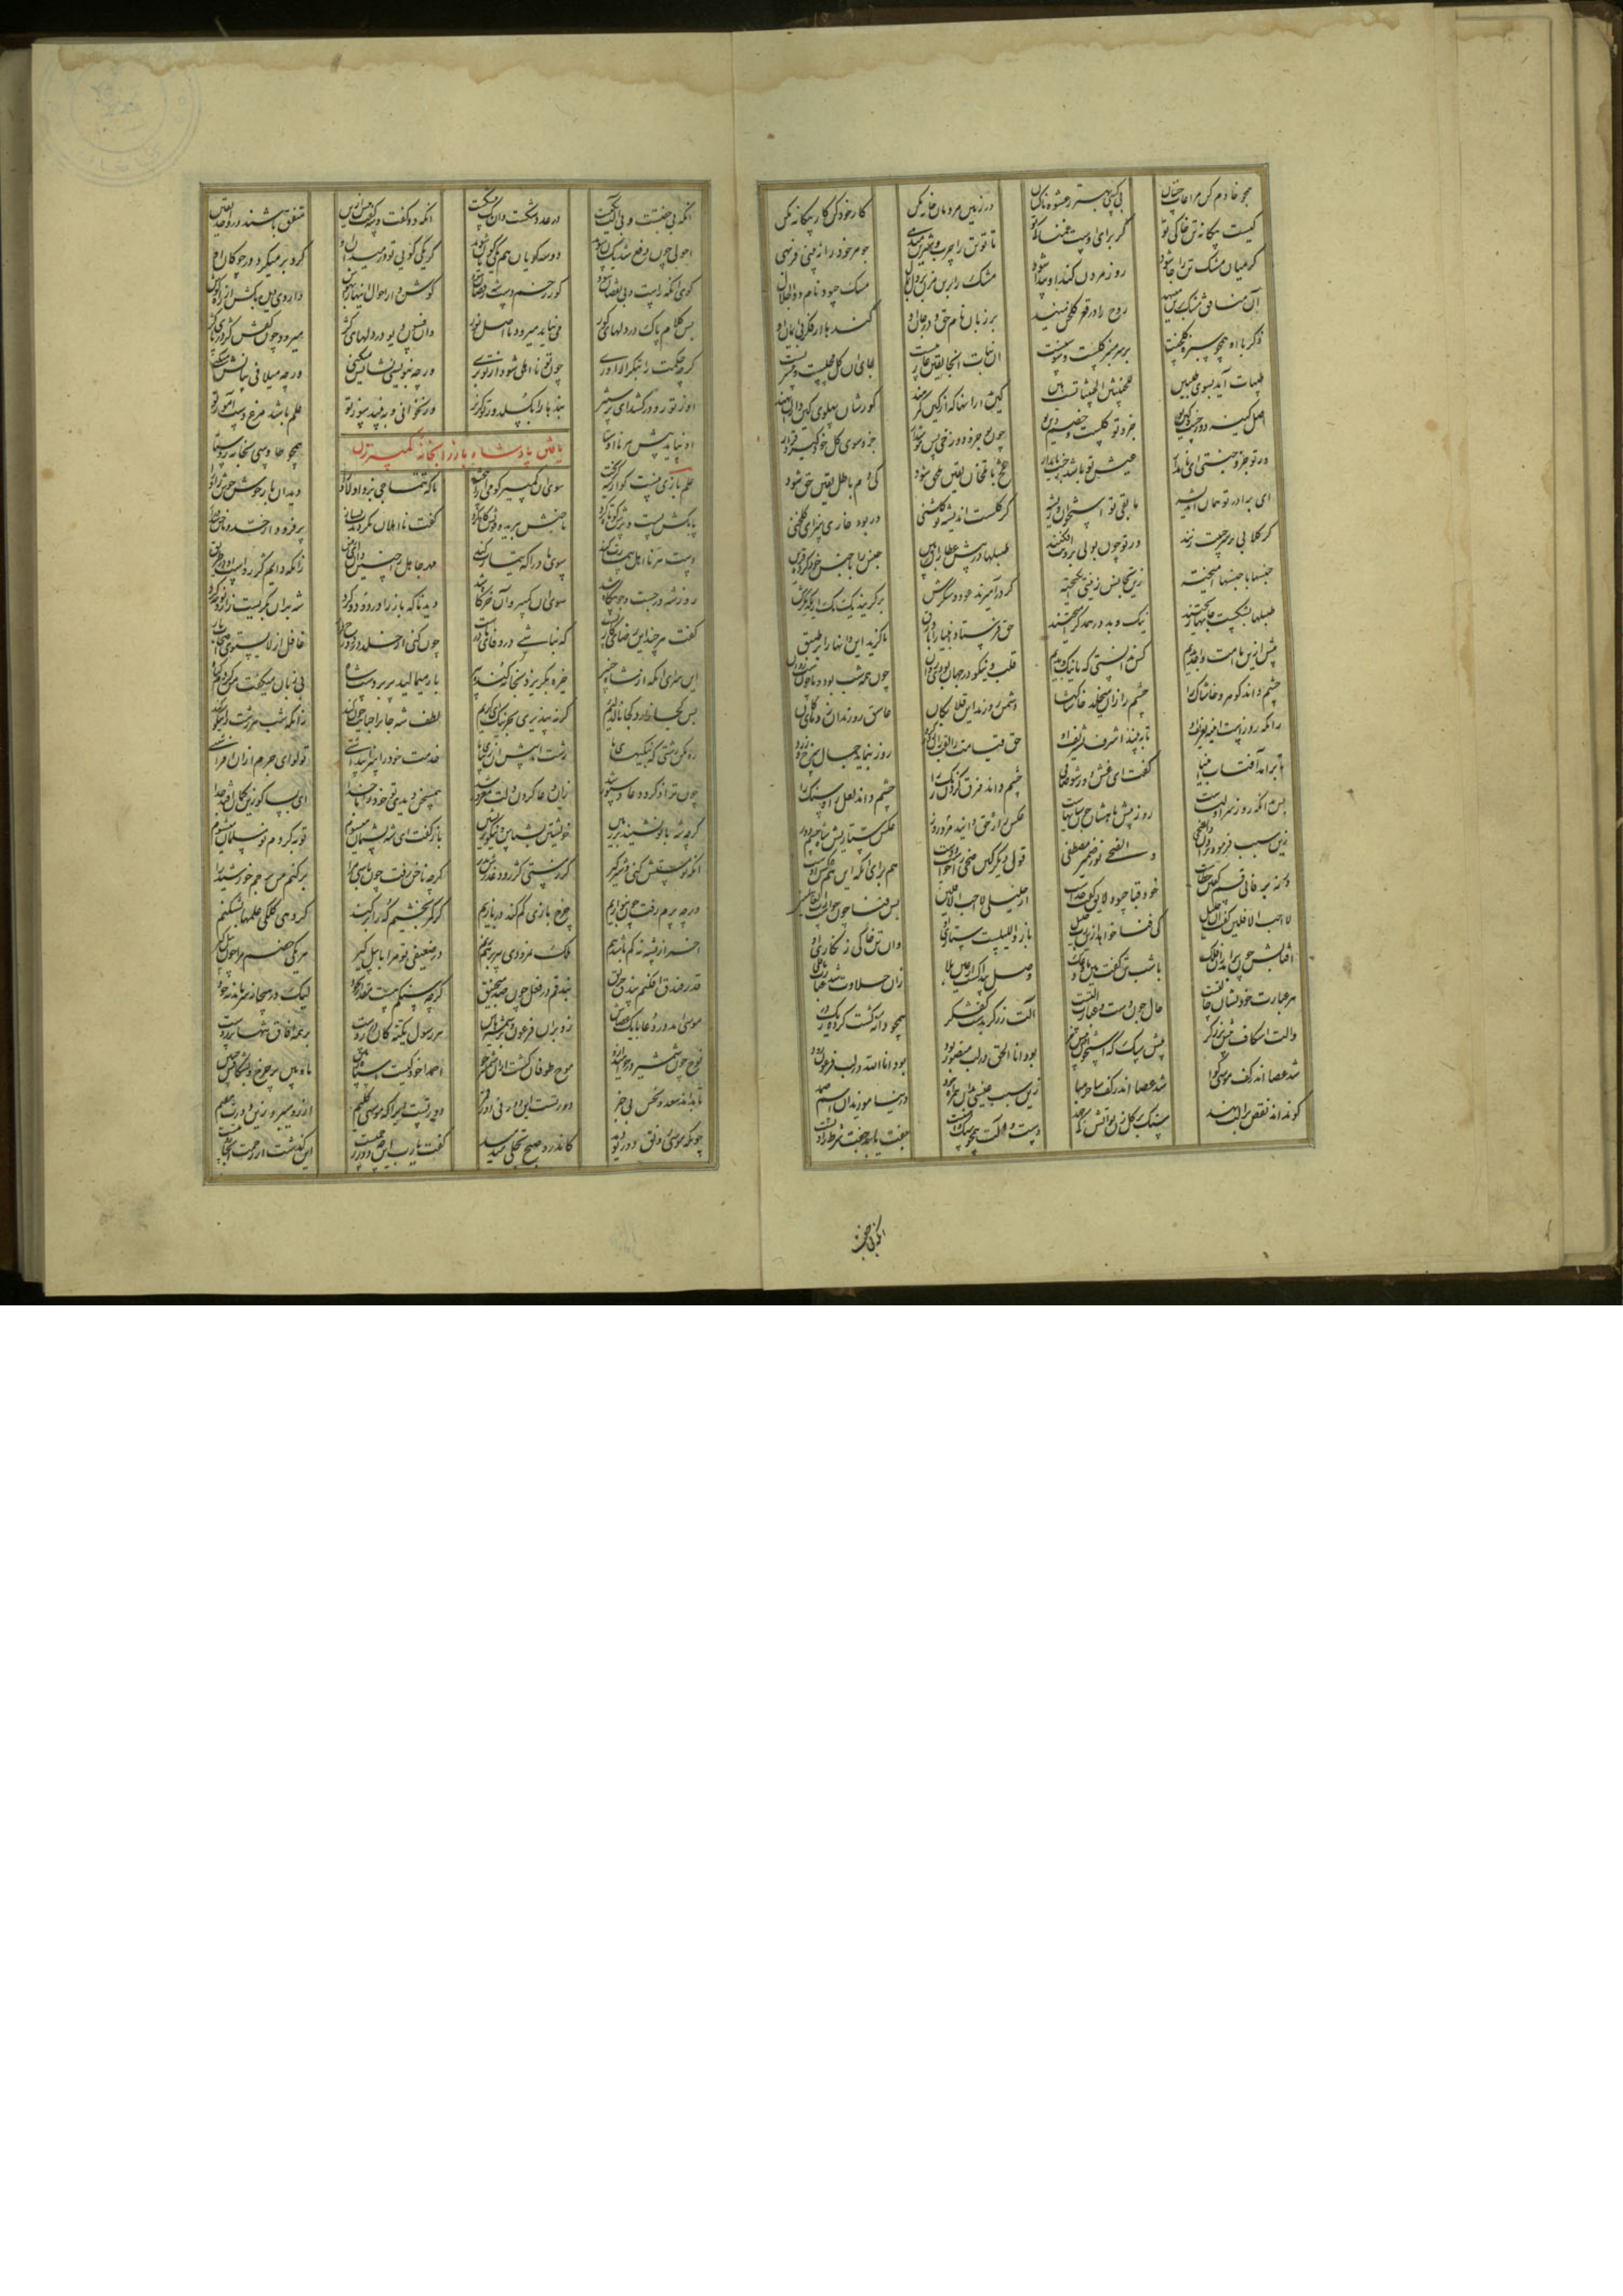 همچو خادم کن مراعات خسان
بی کسی بهتر ز عشوه ناکسان
در زمین مردمان خانه مکن
کار خود کن کار بیکانه مکن
کیست بیکانه تن خاکی تو
کز برای اوست غمناکی تو
تا تو تن را چرب و شیرین میدهی
جوهر خود را نبینی فربهی
کر میان مشک تن را جا شود
روز مردن کند او پیدا شود
مشک را بر تن مزن بر دل بمال
مشک چبود نام پاک ذوالجلال
آن منافق مشک بر تن مینهد
روح را در قعر کلخن مینهد
بر زبان نام حق و در جان او
کندها از فکر بی ایمان او
ذکر با او همچو سبزه کلخنست
بر سر مبرز کلست و سوسنست
آن نبات آنجا یقین عاریتست
جای آن کل مجلسست و عشرتست
طیبات آید بسوی طیبین
للخبیثین الخبیثات است هین
کین مدار آنها که از کین کمرهند
کورشان پهلوی کین داران نهند
اصل کینه دوزخست و کین تو
جزو آن کلست و خصم دین تو
چون تو جزو دوزخی پس هوش دار
جزو سوی کل خود کیرد قرار
ور تو جزو جنتی ای نامدار
عیش تو باشد ز جنت پایدار
تلخ با تلخان یقین ملحق شود
کی دم باطل قرین حق شود
ای برادر تو همان اندیشه
ما بقی تو استخوان و ریشه
کر کلست اندیشه تو کلشنی
ور بود خاری تو هیمه کلخنی
کر کلابی بر سر و جیبت زنند
ور تو چون بولی برونت افکنند
طبلها در پیش عطاران ببین
جنس را با جنس خود کرده قرین
جنسها با جنسها آمیخته
زین تجانس زینتی انکیخته
کر درآمیزند عود و شکرش
برکزیند یک یک از یکدیکرش
طبلها بشکست و جانها ریختند
نیک و بد در همدکر آمیختند
حق فرستاد انبیا را با ورق
تا کزید این دانها را بر طبق
پیش ازین ما امت واحد بدیم
کس ندانستی که ما نیک و بدیم
قلب و نیکو در جهان بودی روان
چون همه شب بود و ما چون شب روان
چشم داند کوهر و خاشاک را
چشم را زان میخلد خاشاکها
دشمن روزند این قلابکان
عاشق روزند آن زرهای کان
زانکه روزست آینه تعریف او
تا ببیند اشرفی تشریف او
حق قیامت را لقب زان روز کرد
روز بنماید جمال سرخ و زرد
تا برآمد آفتاب انبیا
کفت ای غش دور شو صافی بیا
چشم داند فرق کردن رنک را
چشم داند لعل را و سنک را
پس آنکه روز سر اولیاست
روز پیش ماهشان چون سایهاست
عکس راز حق دانید روز
عکس ستاریش شام چشم دوز
زین سبب فرمود یزدان والضحی
والضحی نور ضمیر مصطفی
قول دیکر کین ضحی را خواست دوست
هم برای آنکه این هم عکس اوست
ورنه بر فانی قسم کفتن خطاست
خود فنا چه لایق کفت خداست
از خلیلی لا احب الافلین
پس فنا چون خواست رب العالمین
لا احب الافلین کفت آن خلیل
کی فنا خواهد ازین رب جلیل
باز واللیل است ستاری او
وان تن خاکی زنکاری او
آفتابش چون برآمد زان فلک
با شب تن کفت هین ما ودعک
وصل پیدا کشت از عین بلا
زان حلاوت شد عبارت ما قلی
هر عبارت خود نشان حالتیست
حال چون دست و عبارت آلتیست
آلت زرکر بدست کفشکر
همچو دانه کشت کرده ریک در
والت اسکاف پیش برزکر
پیش سک که استخوان در پیش خر
بود انا الحق در لب منصور نور
بود انا الله در لب فرعون زور
شد عصا اندر کف موسی کوا
شد عصا اندر کف ساحر هبا
زین سبب عیسی بدان همراه خود
در نیاموزید آن اسم صمد
کو نداند نقص بر آلت نهد
سنک بر کل زن تو آتش کی جهد
دست و آلت همچو سنک و آهنست
جفت باید جفت شرط زادنست
آنکه بی جفت
آنکه بی جفتست و بی آلت یکیست
در عدد شکست و آن یک بی شکیست
آنکه دو کفت و سه کفت و بیش ازین
متفق باشند در واحد یقین
احولی چون دفع شد یکسان شوند
دو سه کویان هم یکی کویان شوند
کر یکی کویی تو در میدان او
کرد بر میکرد در چوکان او
کوی آنکه راست و بی نقصان شود
کو ز زخم دست شه رقصان شود
کوش دار ای احول اینها را بهوش
داروی دیده بکش از راه کوش
بس کلام پاک در دلهای کور
می نپاید میرود تا اصل نور
وان فسون دیو در دلهای کژ
میرود چون کفش کژ در پای کژ
کرچه حکمت را بتکرار آوری
چون تو نااهلی شود از تو بری
ورچه بنویسی نشانش میکنی
ورچه میلافی بیانش میکنی
او ز تو رو درکشد ای پرستیز
بندها را بکسلد وز تو کریز
ور نخوانی و ببیند سوز تو
علم باشد مرغ دست آموز تو
او نپاید پیش هر نا اوستا
همچو طاوسی بخانه روستا
یافتن پادشاه باز را بخانه کمپیر زن
علم بازیست کو از شه کریخت
سوی آن کمپیر کو می آرد بیخت
تا که تتماجی پزد اولاد را
دید آن باز خوش خوش زاد را
پایکش بست و پرش کوتاه کرد
ناخنش ببرید و قوتش کاه کرد
کفت نااهلان نکردندت بساز
پر فزود از حد و ناخن شد دراز
دست هر نااهل بیمارت کند
سوی مادر آ که تیمارت کند
مهر جاهل را چنین دان ای رفیق
زانکه دایم کژ رود او در طریق
روز شه در جست و جو بیکاه شد
سوی آن کمپیر و آن خرکاه شد
دید ناکه باز را در دود و کرد
شه بر آن بکریست زار و نوحه کرد
کفت هرچند این جزای کار تست
که نباشی در وفای ما درست
چون کنی از خلد در دوزخ فرار
غافل از لا یستوی اصحاب نار
این سزای آنکه از شاه خبیر
خیره بکریزد بخانه کنده پیر
باز میمالید پر بر دست شاه
بی زبان میکفت من کردم کناه
پس کجا زارد کجا نالد لئیم
کر تو نپذیری بجز نیک ای کریم
لطف شه جان را جنایت جو کند
زانکه شه هر زشت را نیکو کند
رو مکن زشتی که نیکیهای ما
زشت آید پیش آن زیبای ما
خدمت خود را سزا پنداشتی
تو لوای جرم از آن افراشتی
چون ترا ذکر و دعا دستور شد
زان دعا کردن دلت مغرور شد
همسخن دیدی تو خود را با خدا
ای بسا کو زین کمان افتد جدا
کرچه شه با تو نشیند بر زمین
خویشتن بشناس و نیکوتر نشین
باز کفت ای شه پشیمان میشوم
توبه کردم نو مسلمان میشوم
آنکه تو مستش کنی و شیرکیر
کر ز مستی کژ رود عذرش پذیر
کرچه ناخن رفت چون باشی مرا
برکنم من پرچم خورشید را
ورچه پرم رفت چون بنوازیم
چرخ بازی کم کند در بازیم
کر کمر بخشیم که را برکنم
کر دهی کلکی علمها بشکنم
آخر از پشه نه کم باشد تنم
ملک نمرودی بپر برهم زنم
در ضعیفی تو مرا بابیل کیر
هر یکی خصم مرا چون پیل کیر
قدر فندق افکنم بندق حریق
بندقم در فعل چون صد منجنیق
کرچه سنکم هست مقدار نخود
لیک در هیجا نه سر ماند نه خود
موسی آمد در وغا با یک عصاش
زد بر آن فرعون و بر شمشیرهاش
هر رسول یکتنه کان در زدست
بر همه آفاق تنها برزدست
نوح چون شمشیر در خواهید ازو
موج طوفان کشت ازو شمشیرخو
احمدا خود کیست اسپاه زمین
ماه بین بر چرخ و بشکافش جبین
تا بداند سعد و نحس بی خبر
دور تست این دور نی دور قمر
دور تست ایرا که موسی کلیم
آرزو میبرد زین دورت مقیم
چونکه موسی رونق دور تو دید
کاندرو صبح تجلی میدمید
کفت یارب این چه دور رحمتست
این کذشت از رحمت آنجا رویتست